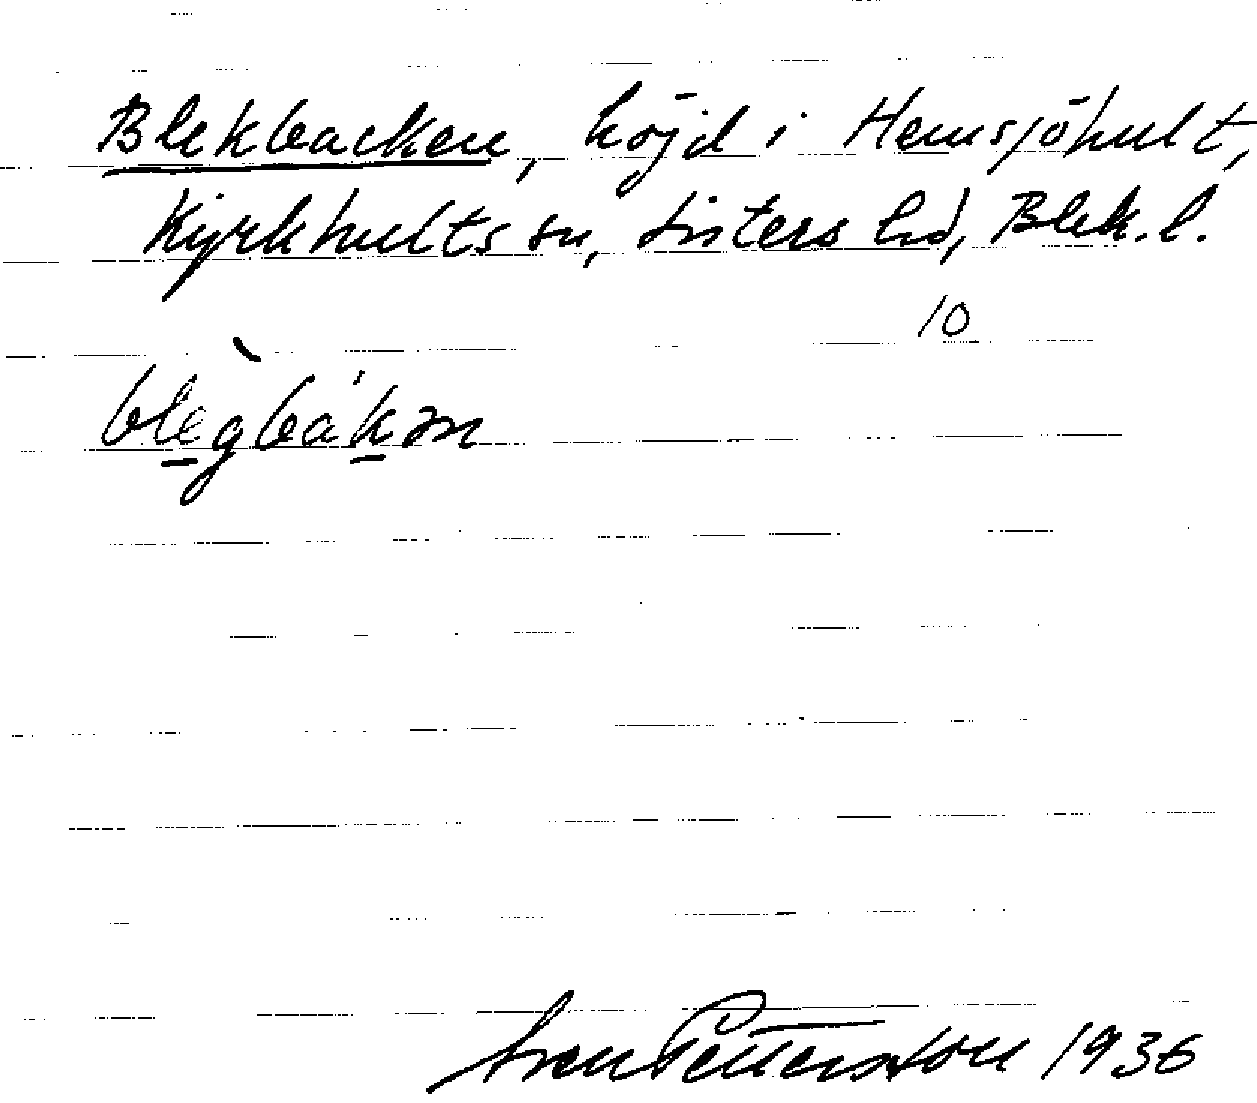 Blekbacken, höjd i Hemsjöhult,
Kyrkhults sn, Listers hd, Blek. l.
10
blègbákən
Sven Petterson 1936